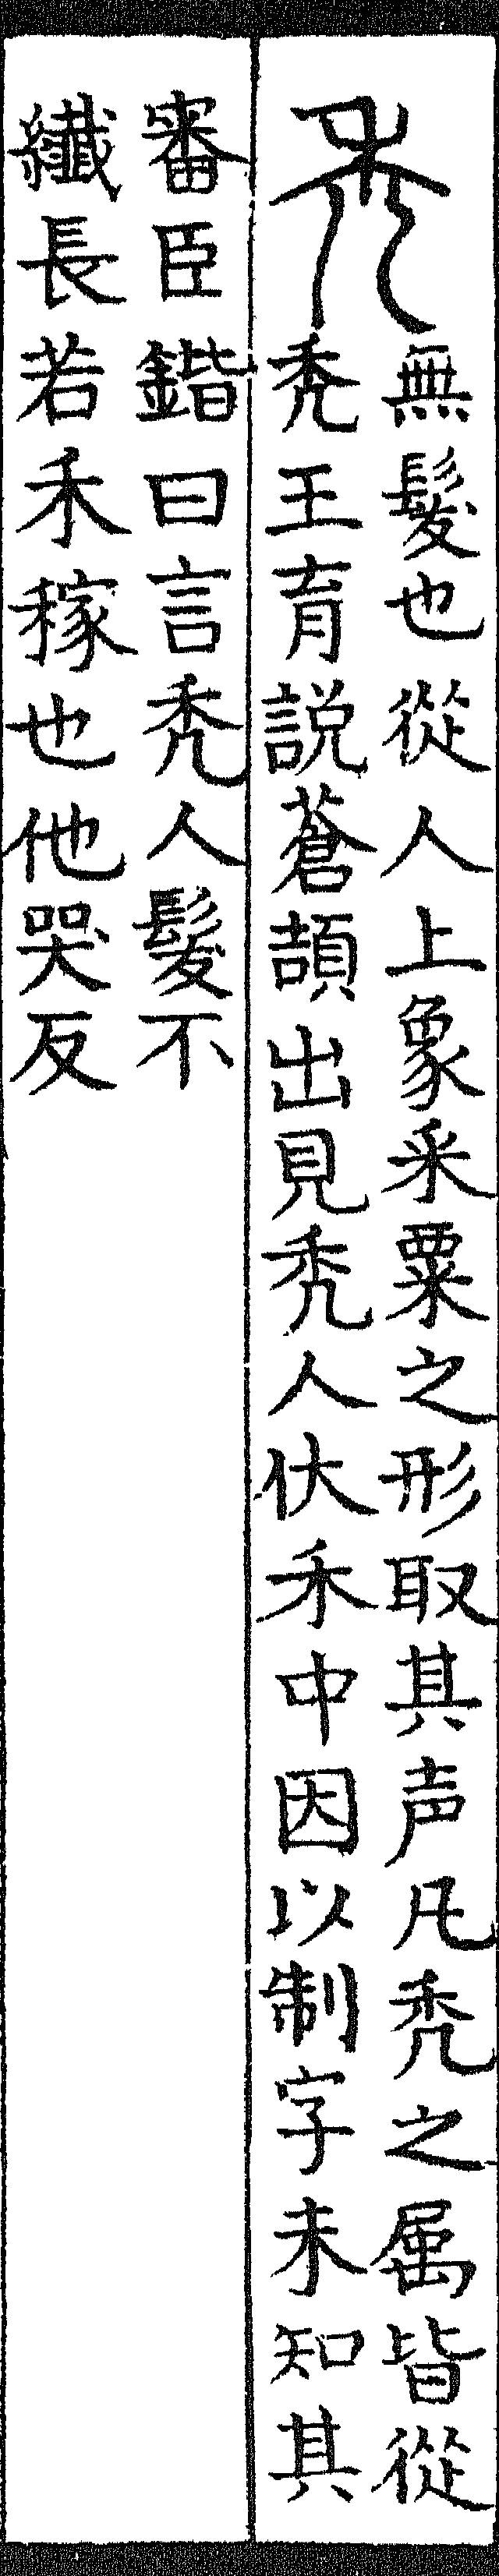 禿
無髮也從人上象釆粟之形取其声凡禿之属皆從
禿王育說蒼頡出見禿人伏禾中因以制字未知其
審臣鍇曰言禿人髮不
纖長若禾稼也他哭反